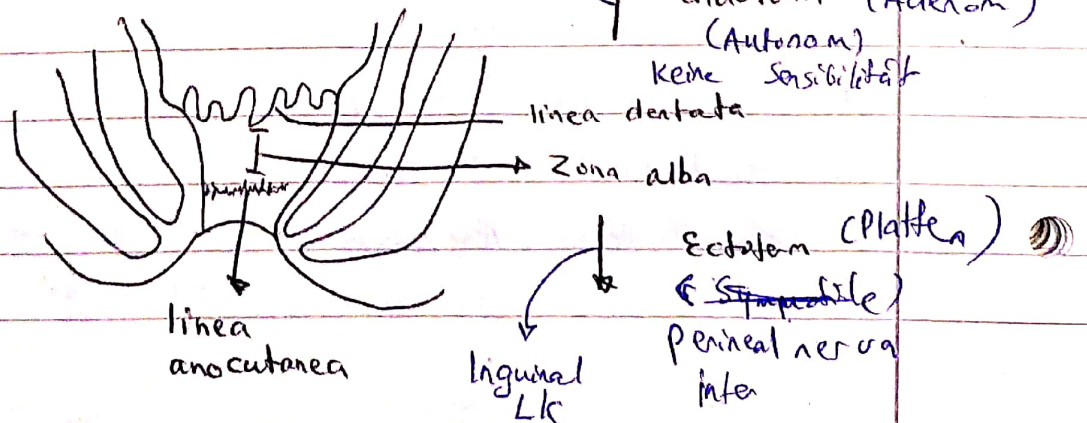 (Adenom)
(Autonom)
Keine Sensibilität
linea dentata
Zona alba
Ectoderm (Platten)
perineal nerva
inter
linea
anocutanea
Inguinal
LK